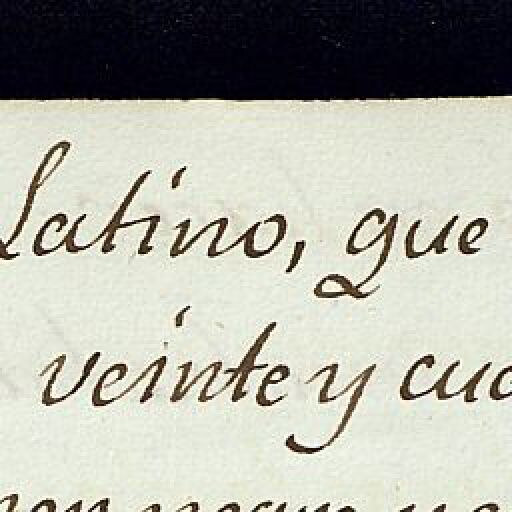 Latino, que
veinte y cua